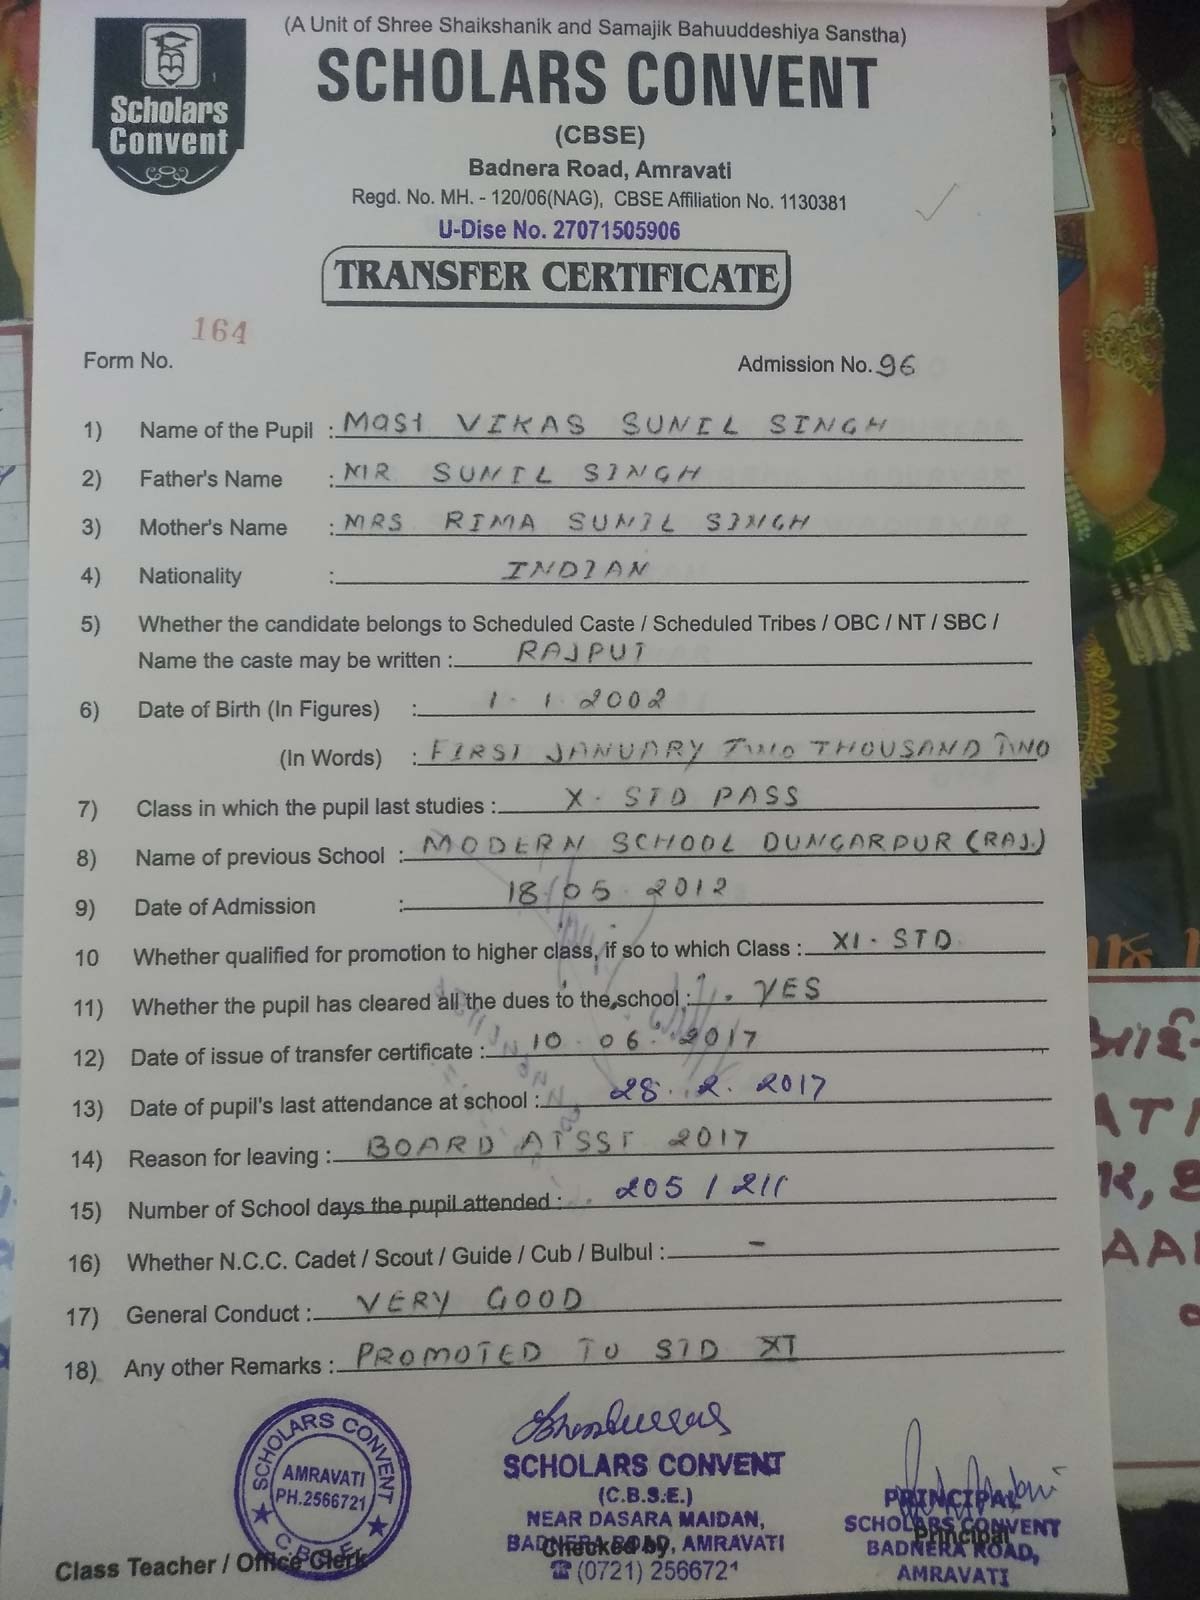 (A Unit of Shree Shaikshanik and Samajik Bahuuddeshiya Sanstha)
Scholars
Convent
SCHOLARS CONVENT
(CBSE)
Badnera Road, Amravati
Regd. No. MH. - 120/06(NAG), CBSE Affiliation No. 1130381
U-Dise No. 27071505906
TRANSFER CERTIFICATE
164
Form No. Admission No. 96
1) Name of the Pupil : Mast VIKAS SUNIL SINGH
2) Father's Name : MR SUNIL SINGH
3) Mother's Name : MRS RIMA SUNIL SINGH
4) Nationality : INDIAN
5) Whether the candidate belongs to Scheduled Caste / Scheduled Tribes / OBC / NT / SBC /
Name the caste may be written : RAJPUT
6) Date of Birth (In Figures) : 1 - 1 2002
(In Words) : FIRST JANUARY TWO THOUSAND TWO
7) Class in which the pupil last studies : X - STD PASS
8) Name of previous School : MODERN SCHOOL DUNGARPUR (RAJ.)
9) Date of Admission : 18/05 . 2012
10 Whether qualified for promotion to higher class, if so to which Class : XI - STD
11) Whether the pupil has cleared all the dues to the school : YES
12) Date of issue of transfer certificate : 10 . 06 . 2017
13) Date of pupil's last attendance at school : 28 . 2 . 2017
14) Reason for leaving : BOARD ATSST 2017
15) Number of School days the pupil attended : 205 / 211
16) Whether N.C.C. Cadet / Scout / Guide / Cub / Bulbul : -
17) General Conduct : VERY GOOD
18) Any other Remarks : PROMOTED TO STD XI
SCHOLARS CONVENT
AMRAVATI
PH.2566721
C.B.S.E.
Class Teacher / Office Clerk
SCHOLARS CONVENT
(C.B.S.E.)
NEAR DASARA MAIDAN,
BADNERA ROAD, AMRAVATI
Checked by
☎ (0721) 2566721
PRINCIPAL
SCHOLARS CONVENT
Principal
BADNERA ROAD,
AMRAVATI